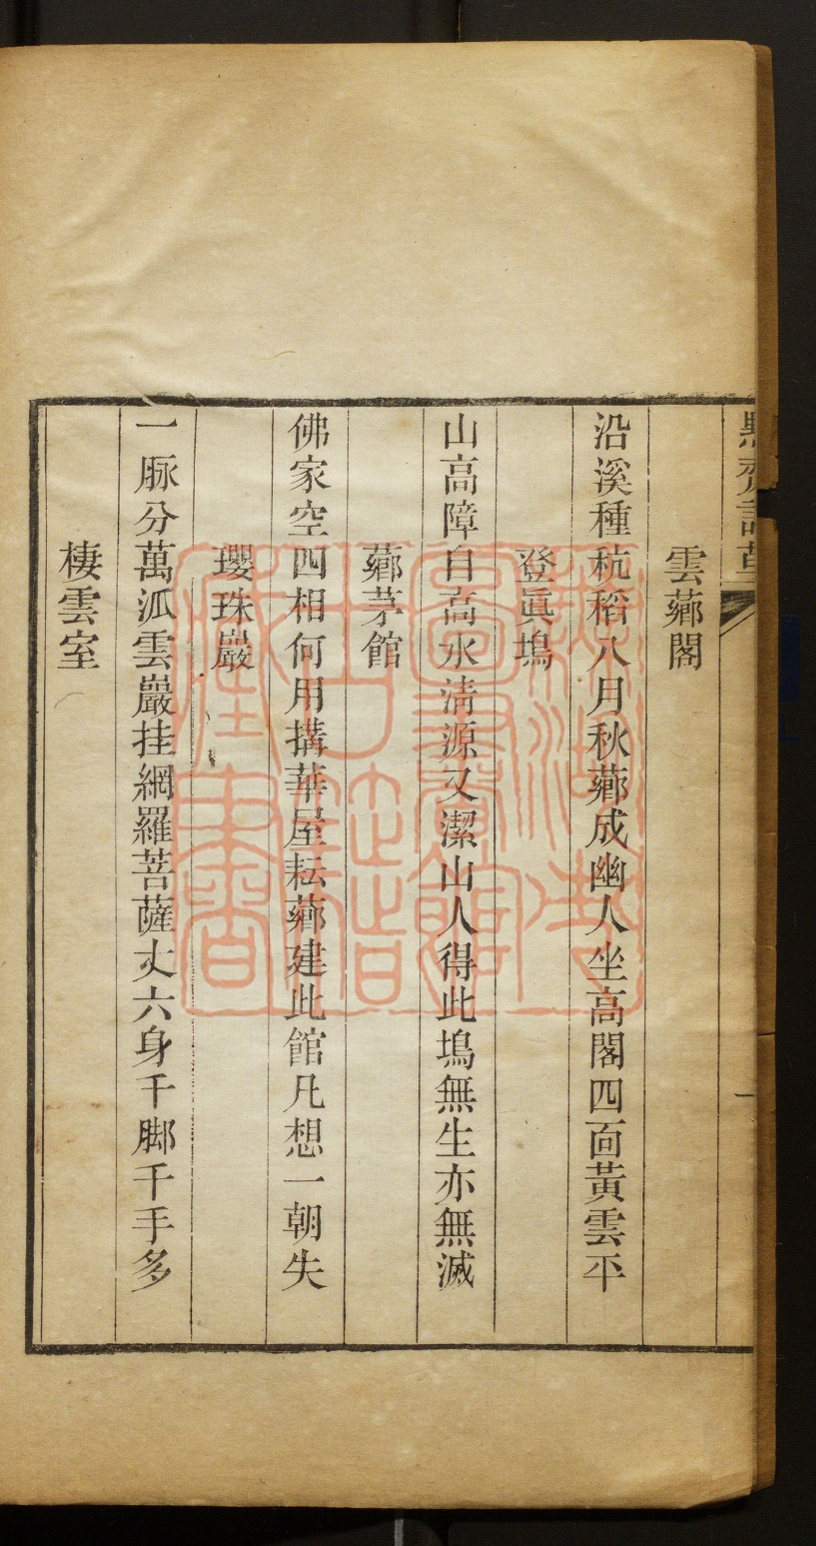 雲薌閣
沿溪種秔稻八月秋薌成幽人坐高閣四面黃雲平
登眞塢
山高障自高水淸源又潔山人得此塢無生亦無滅
薌茅館
佛家空四相何用搆華屋耘薌建此館凡想一朝失
瓔珠巖
一脈分萬泒雲巖挂網羅菩薩丈六身千脚千手多
棲雲室